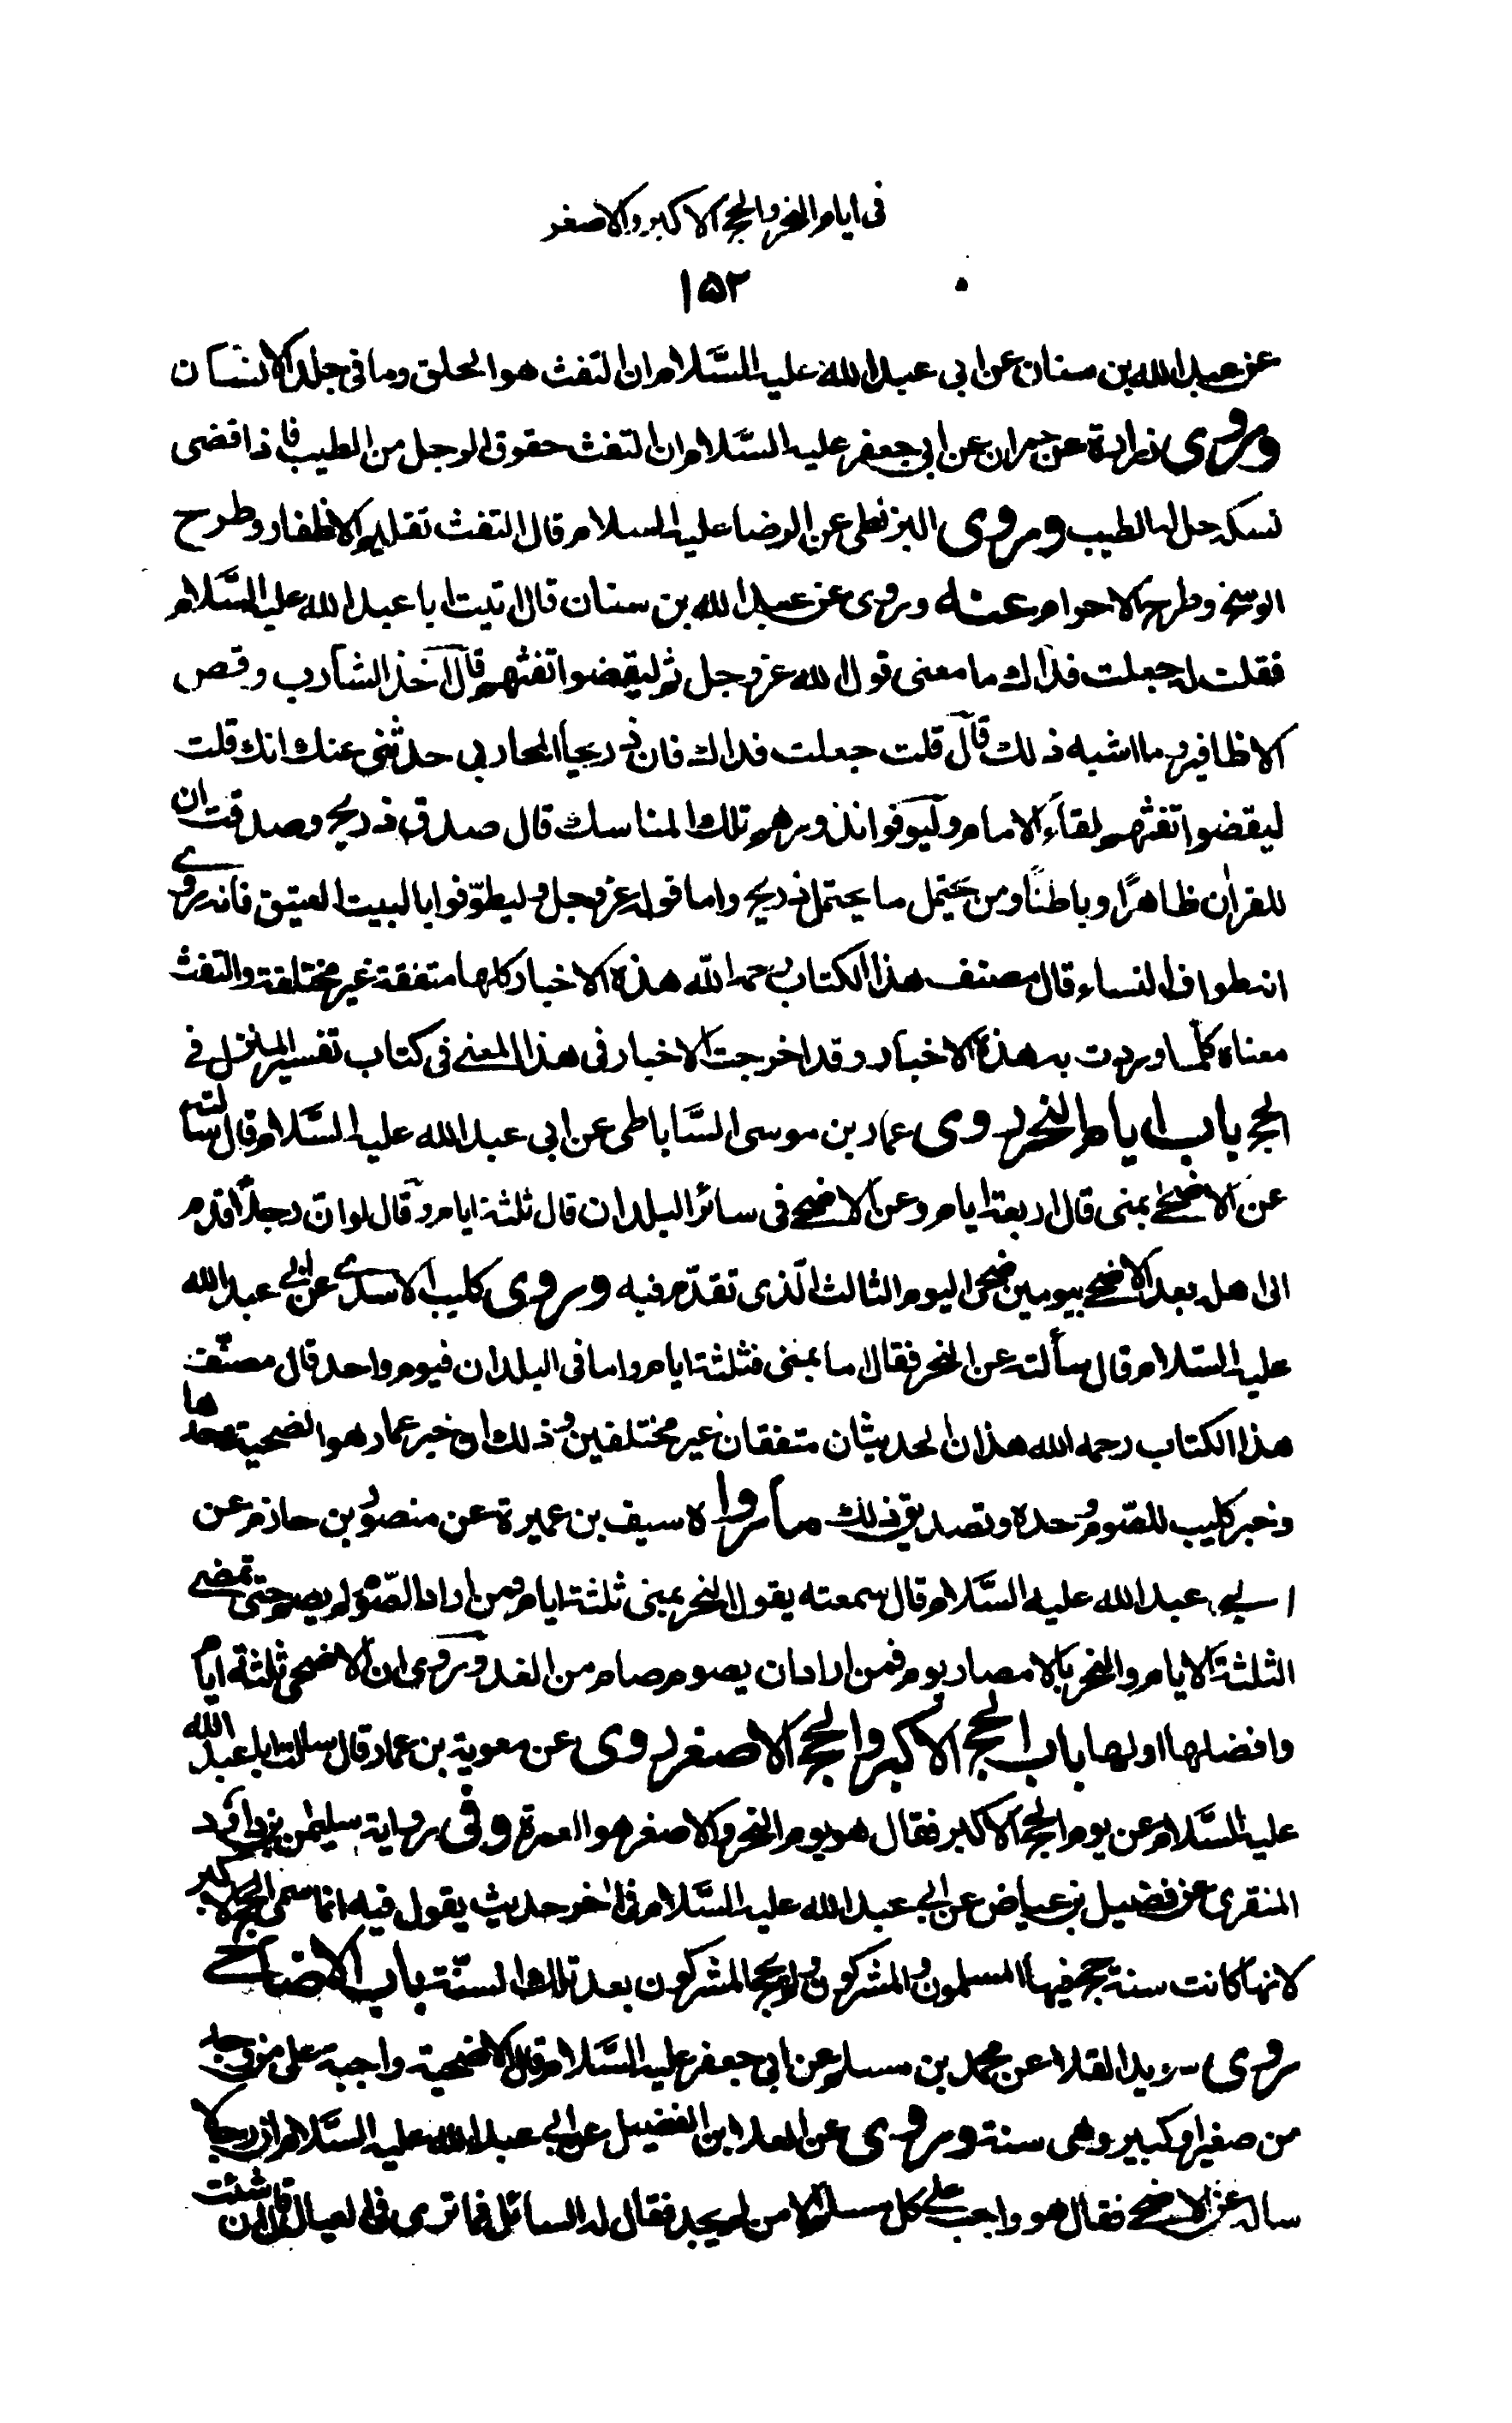 فى ايام النحر والحج الاكبر والاصغر
١٥٢
عن عبد الله بن سنان عن ابى عبد الله عليه السَّلام ان التفث هو الحلق وما فى جلد الانسان
وروى زرارة عن حمران عن ابى جعفر عليه السَّلام ان التفث حقوق الرجل من الطيب فاذا قضى
نسكه حل له الطيب وروى البزنطى عن الرضا عليه السلام قال التفث تقليم الاظفار وطرح
الوسخ وطرح الاحرام عنه وروى عن عبد الله بن سنان قال اتيت ابا عبد الله عليه السَّلام
فقلت له جعلت فداك ما معنى قول الله عز وجل ثم ليقضوا تفثهم قال اخذ الشارب وقص
الاظافير وما اشبه ذلك قال قلت جعلت فداك فان ذريحا المحاربى حدثنى عنك انك قلت
ليقضوا تفثهم لقاء الامام وليوفوا نذورهم تلك المناسك قال صدق ذريح وصدقت ان
للقران ظاهرًا وباطنًا ومن يحتمل ما يحتمل ذريح واما قوله عز وجل وليطوّفوا بالبيت العتيق فانه روى
انه طواف النساء قال مصنف هذا الكتاب رحمه الله هذه الاخبار كلها متفقة غير مختلفة والتفث
معناه كلما وردت به هذه الاخبار وقد اخرجت الاخبار فى هذا المعنى فى كتاب تفسير المنزل فى
الحج باب ايام النحر روى عمار بن موسى السَّاباطى عن ابى عبد الله عليه السَّلام قال سالته
عن الاضحى بمنى قال اربعة ايام وعن الاضحى فى سائر البلدان قال ثلثة ايام وقال لو انّ رجلًا قدم
الى اهله بعد الاضحى بيومين ضحى اليوم الثالث الّذى تقدّم فيه وروى كليب الاسدى عن ابى عبد الله
عليه السّلام قال سألته عن النحر فقال اما بمنى فثلثة ايام واما فى البلدان فيوم واحد قال مصنّف
هذا الكتاب رحمه الله هذان الحديثان متفقان غير مختلفين وذلك ان خبر عمار هو للضحية وحدها
وخبر كليب للصّوم وحده وتصديق ذلك ما رواه سيف بن عميرة عن منصور بن حازم عن
ابى عبد الله عليه السَّلام قال سمعته يقول النحر بمنى ثلثة ايام فمن اراد الصّوم لم يصم حتى تمضى
الثلثة الايام والنحر بالامصار يوم فمن اراد ان يصوم صام من الغد وروى ان الاضحى ثلثة ايام
وافضلها اولها باب الحج الاكبر والحج الاصغر روى عن معوية بن عمار قال سالت ابا عبد الله
عليه السَّلام عن يوم الحج الاكبر فقال هو يوم النحر والاصغر هو العمرة وفى رواية سليمن بن داود
المنقرى عن فضيل بن عياض عن ابى عبد الله عليه السَّلام فى اخر حديث يقول فيه انما سمى الحج الاكبر
لانها كانت سنة حج فيها المسلمون والمشركون ولم يحج المشركون بعد تلك السنّة باب الاضاحى
روى سويد القلا عن محمد بن مسلم عن ابى جعفر عليه السَّلام قال الاضحية واجبة على من وجد
من صغير او كبير وهى سنة وروى عن العلا بن الفضيل عن ابى عبد الله عليه السَّلام ان رجلا
ساله عن الاضحى فقال هو واجب على كل مسلم الا من لم يجد فقال له السائل فما ترى فى العيال قال ان شئت